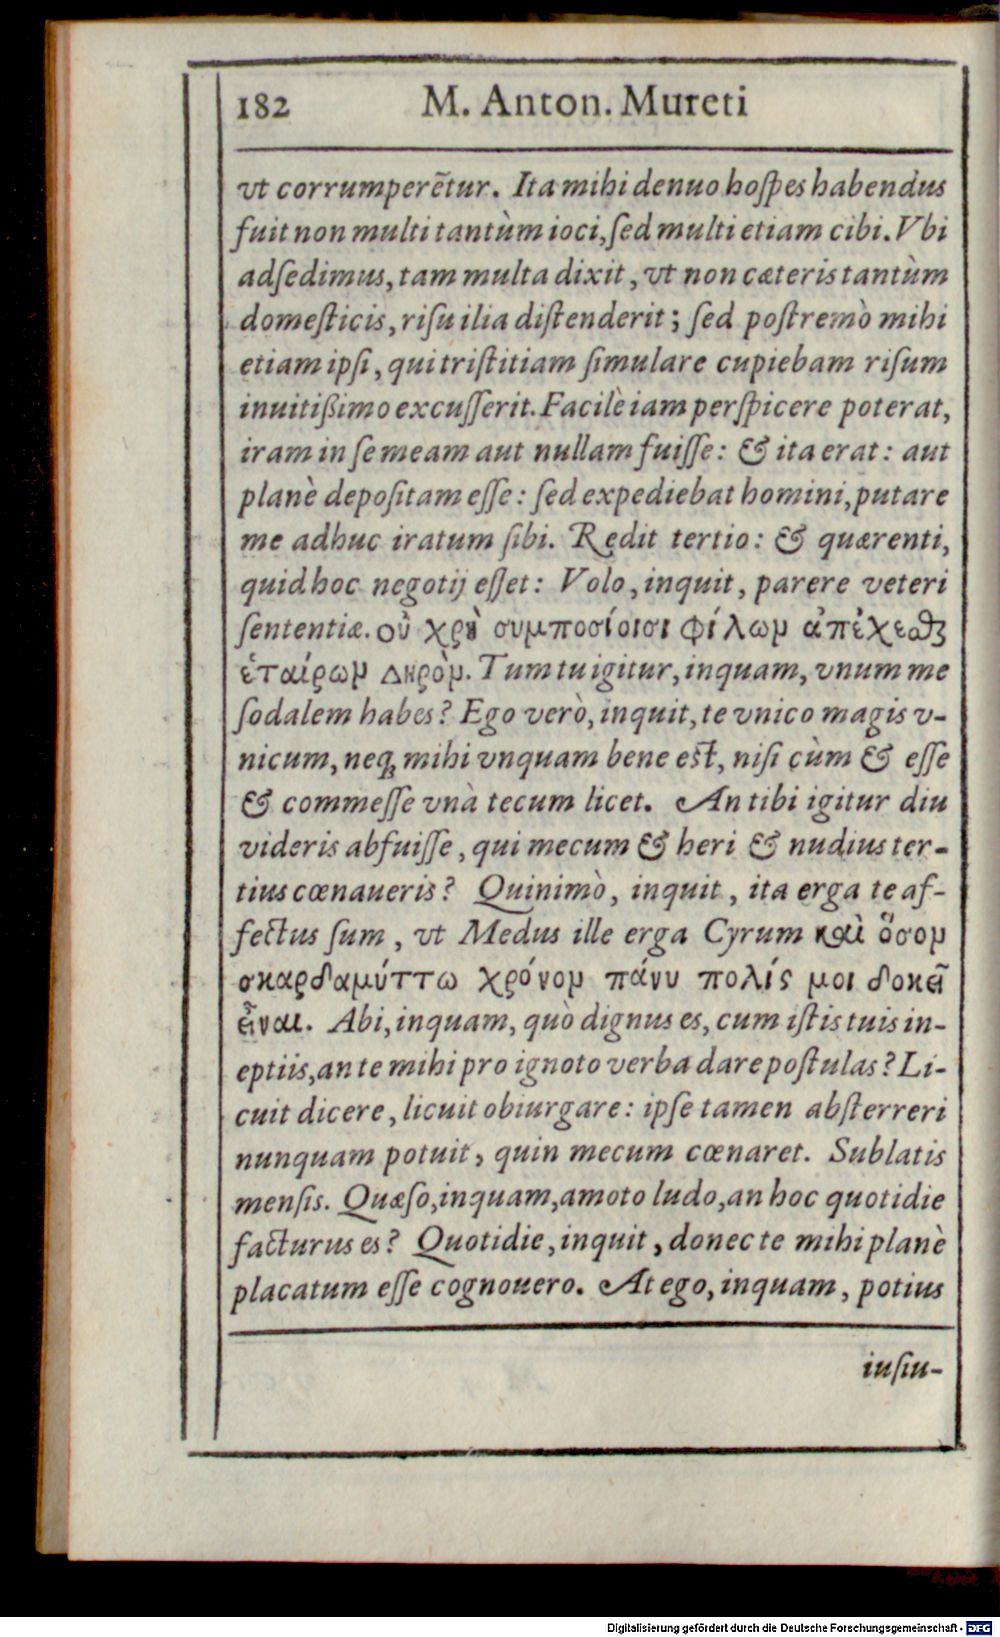 182 M. Anton. Mureti
vt corrumperẽtur. Ita mihi denuo hoſpes habendus
fuit non multi tantùm ioci, ſed multi etiam cibi. Vbi
adſedimus, tam multa dixit, vt non cæteris tantùm
domeſticis, riſu ilia diſtenderit; ſed poſtremò mihi
etiam ipſi, qui triſtitiam ſimulare cupiebam riſum
inuitißimo excuſſerit. Facilè iam perſpicere poterat,
iram in ſe meam aut nullam fuiſſe: & ita erat: aut
planè depoſitam eſſe: ſed expediebat homini, putare
me adhuc iratum ſibi. Redit tertio: & quærenti,
quid hoc negotij eſſet: Volo, inquit, parere veteri
ſententiæ. οὐ χρὴ συμποσίοισι φίλων ἀπέχεσθαι
ἑταίρων δηρὸν. Tum tu igitur, inquam, vnum me
ſodalem habes? Ego verò, inquit, te vnico magis v-
nicum, neq; mihi vnquam bene eſt, niſi cùm & eſſe
& commeſſe vnà tecum licet. An tibi igitur diu
videris abfuiſſe, qui mecum & heri & nudius ter-
tius cœnaueris? Quinimò, inquit, ita erga te af-
fectus ſum, vt Medus ille erga Cyrum καὶ ὅσον
σκαρδαμύττω χρόνον πάνυ πολίς μοι δοκεῖ
εἶναι. Abi, inquam, quò dignus es, cum iſtis tuis in-
eptiis, an te mihi pro ignoto verba dare poſtulas? Li-
cuit dicere, licuit obiurgare: ipſe tamen abſterreri
nunquam potuit, quin mecum cœnaret. Sublatis
menſis. Quæſo, inquam, amoto ludo, an hoc quotidie
facturus es? Quotidie, inquit, donec te mihi planè
placatum eſſe cognouero. At ego, inquam, potius
iuſiu-
Digitalisierung gefördert durch die Deutsche Forschungsgemeinschaft - DFG